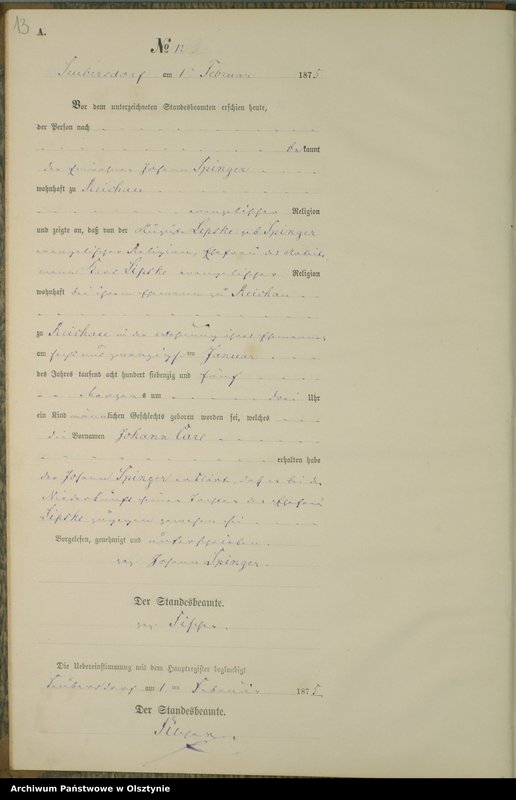 13
A.
No 12
am 1 Februar 1875
Vor dem unterzeichneten Standesbeamten erschien heute,
der Person nach
kannt
der Johann Spinger
wohnhaft zu Reichau
evangelischer Religion
und zeigte an, daß von der Lipske geb. Spinger
evangelischer Religion, Ehefrau des Arbeits
mann Lipske evangelischer Religion
wohnhaft bei ihrem Ehemann zu Reichau
zu Reichau in der Wohnung ihres Ehemannes
am sechs und zwanzigsten Januar
des Jahres tausend acht hundert siebenzig und fünf
Morgens um drei Uhr
ein Kind männlichen Geschlechts geboren worden sei, welches
die Vornamen Johann Carl
erhalten habe
der Johann Spinger erklärt, daß er bei der
Niederkunft seiner Tochter der Ehefrau
Lipske zugegen gewesen sei
Vorgelesen, genehmigt und unterschrieben.
gez. Johann Spinger.
Der Standesbeamte.
gez.
Die Uebereinstimmung mit dem Hauptregister beglaubigt
am 1 ten Februar 1875
Der Standesbeamte.
Archiwum Państwowe w Olsztynie